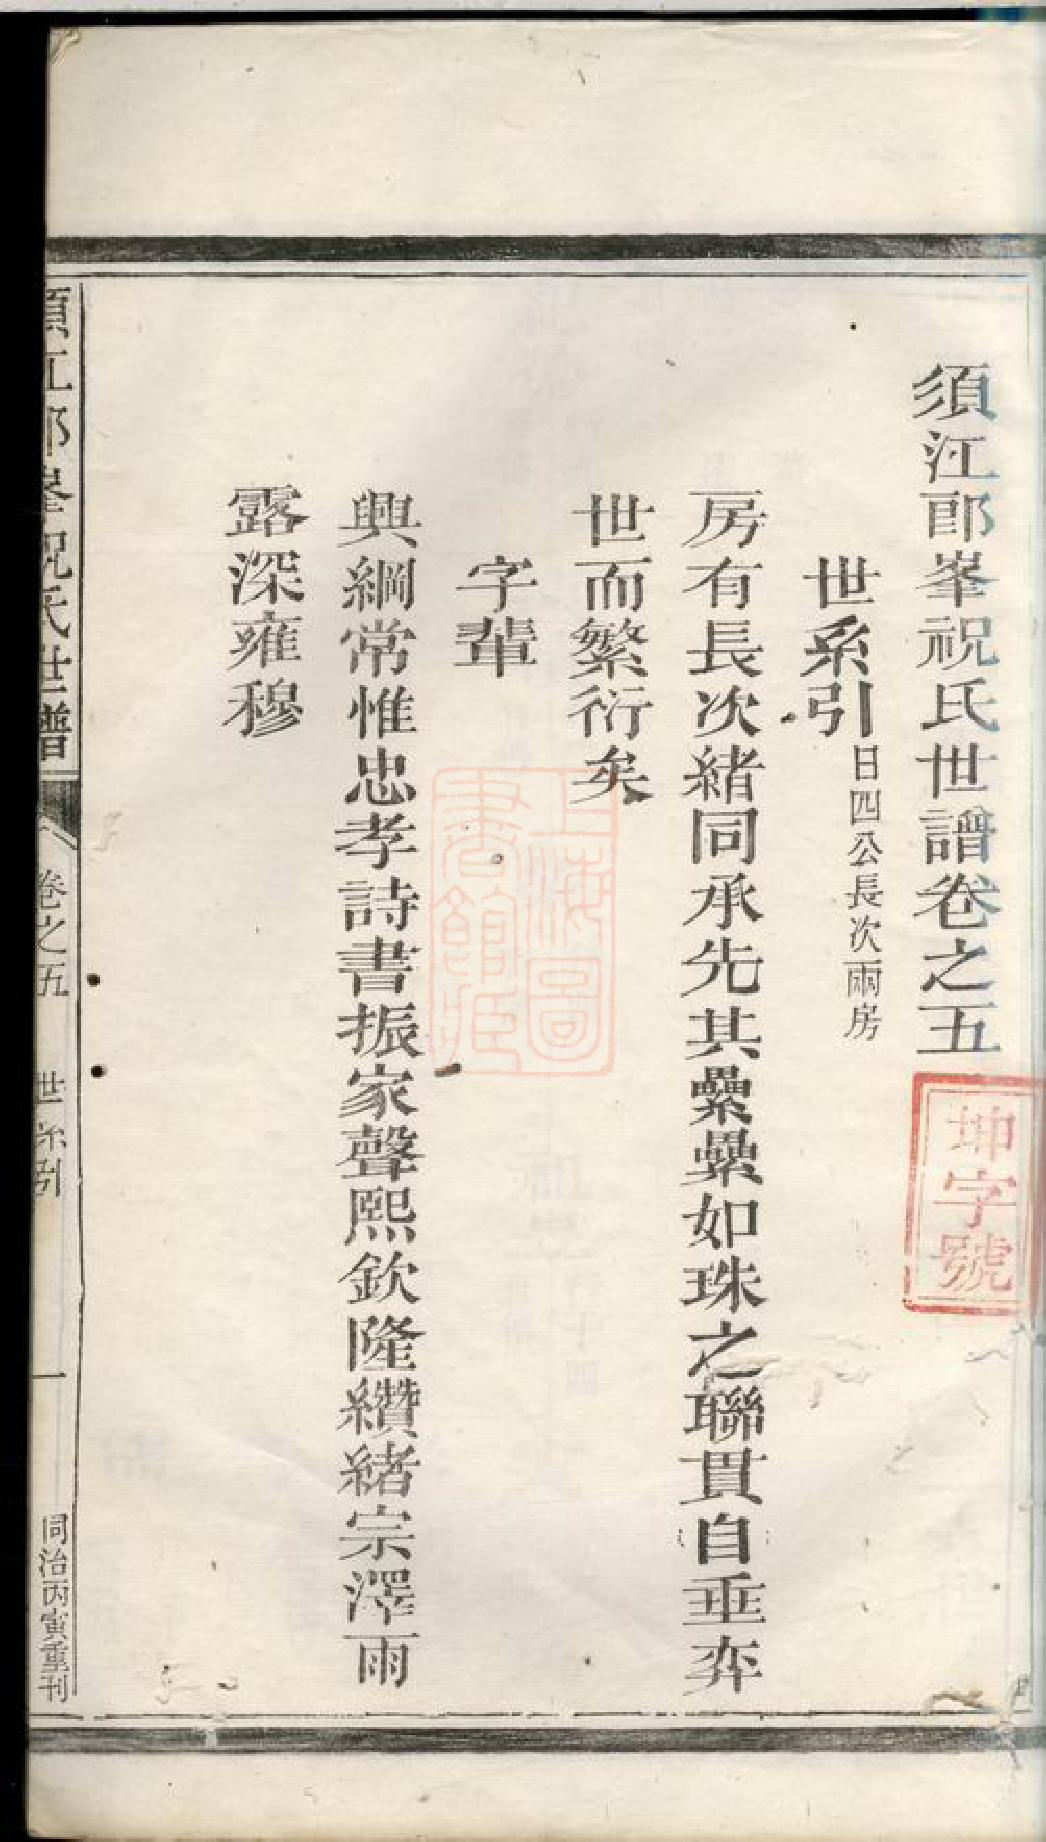 須江郎峯祝氏世譜卷之五
坤字號
世系引 日四公長次兩房
房有長次緒同承先其纍纍如珠之聯貫自垂奕
世而繁衍矣
字輩
興綱常惟忠孝詩書振家聲熙欽隆纘緒宗澤雨
露深雍穆
上海圖書館藏
須江郎峯祝氏世譜 卷之五 世系引 一 同治丙寅重刊